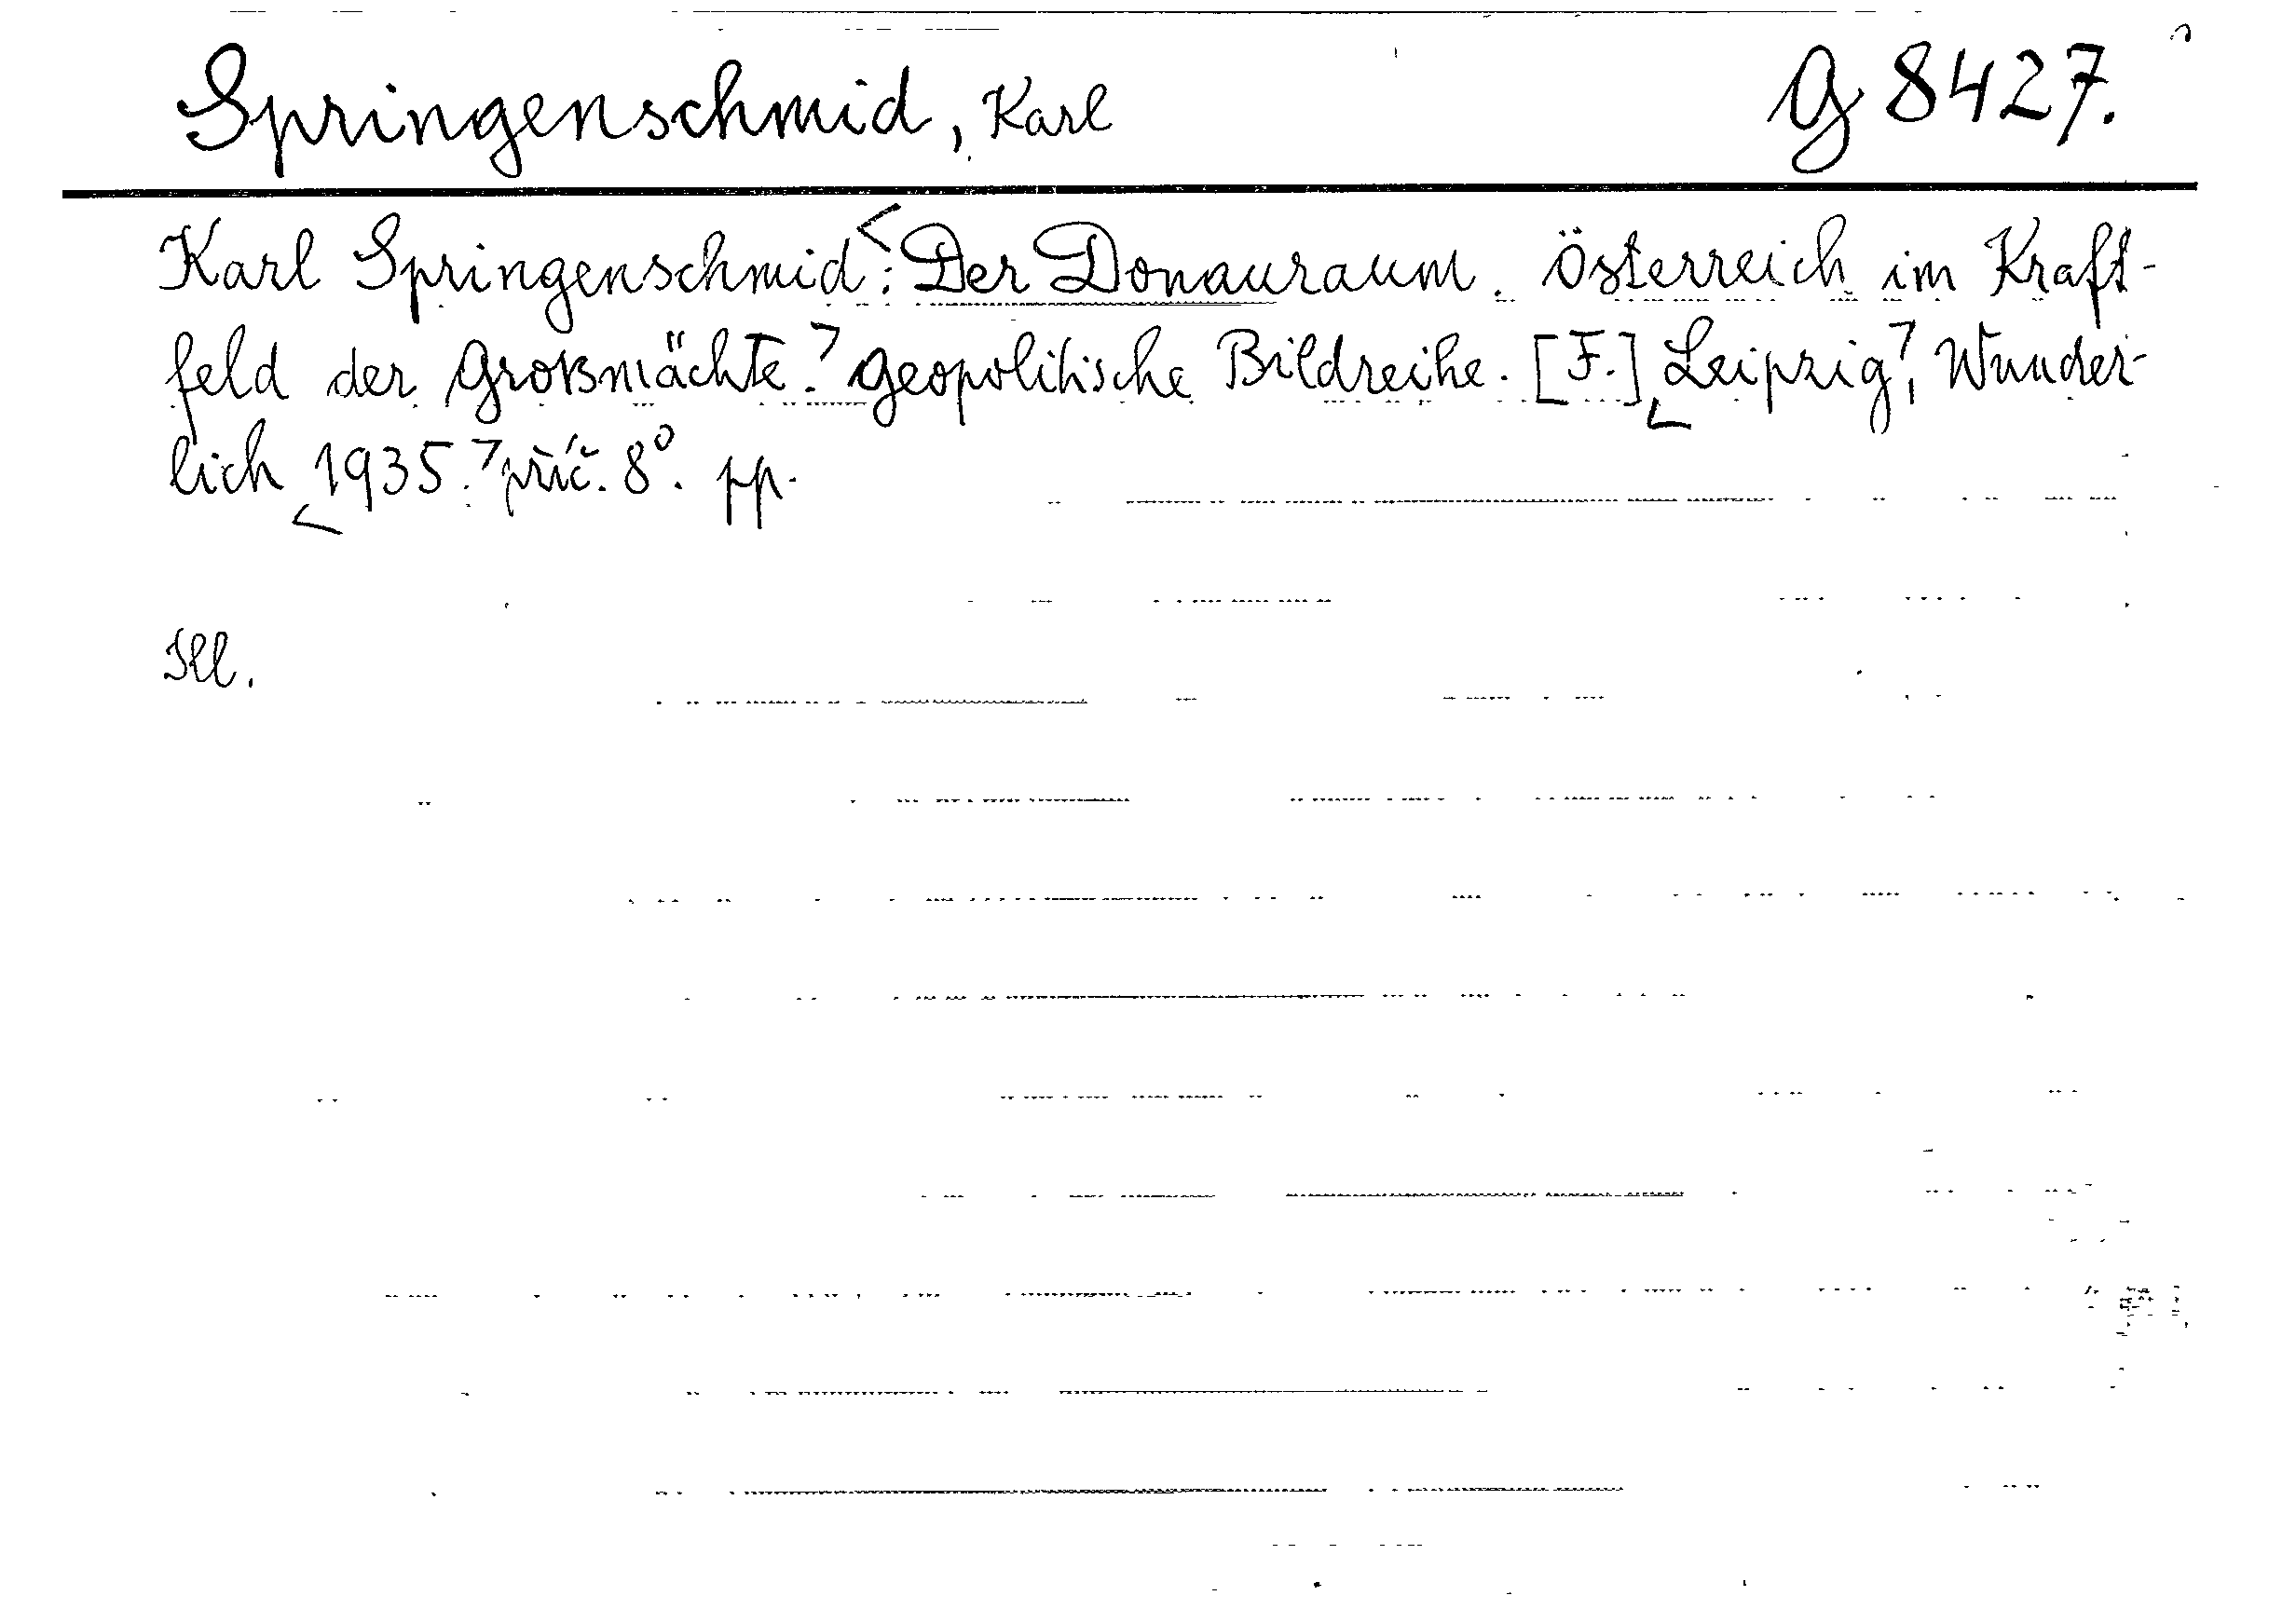 Springenschmid, Karl G 8427.
Karl Springenschmid: <Der Donauraum. Österreich im Kraft-
feld der Großmächte.> Geopolitische Bildreihe. [F.] <Leipzig>, Wunder-
lich <1935.> příč. 8°. pp.
Ill.